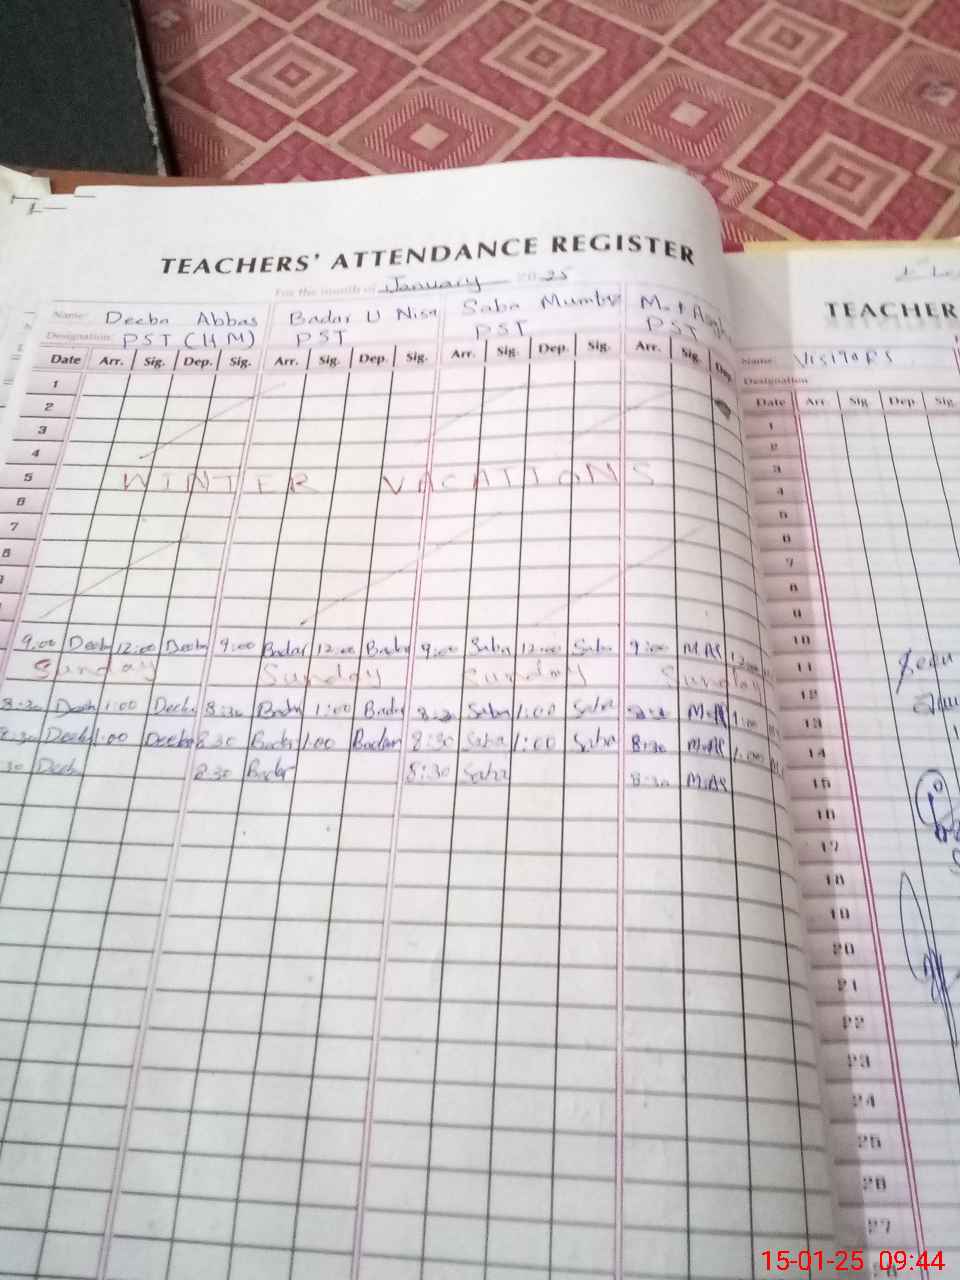 TEACHERS' ATTENDANCE REGISTER
For the month of January 2025
Name: Deeba Abbas Badar U Nisa Saba Mumtaz
Designation: PST (HM) PST PST PST
Date Arr. Sig. Dep. Sig. Arr. Sig. Dep. Sig. Arr. Sig. Dep. Sig. Arr. Sig. Dep.
1
2
3
4
5 WINTER VACATIONS
6
7
8
9:00 Deeba 12:00 Deeba 9:00 Badar 12:00 Badar 9:00 Saba 12:00 Saba 9:00 MAS
Sunday Sunday Sunday Sunday
8:30 Deeba 1:00 Deeba 8:30 Badar 1:00 Badar 8:30 Saba 1:00 Saba MAS 1:00
8:30 Deeba 1:00 Deeba 8:30 Badar 1:00 Badar 8:30 Saba 1:00 Saba 8:30 MAS 1:00
30 Deeba 8:30 Badar 8:30 Saba 8:30 MAS
TEACHER
Name: VISITORS
Designation
Date Arr. Sig. Dep. Sig.
1
2
3
4
5
6
7
8
9
10
11
12
13
14
15
16
17
18
19
20
21
22
23
24
25
26
27
28
15-01-25 09:44